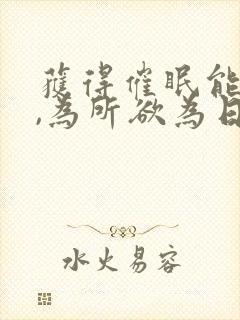 獲得催眠能
,為所欲為日
水火易容